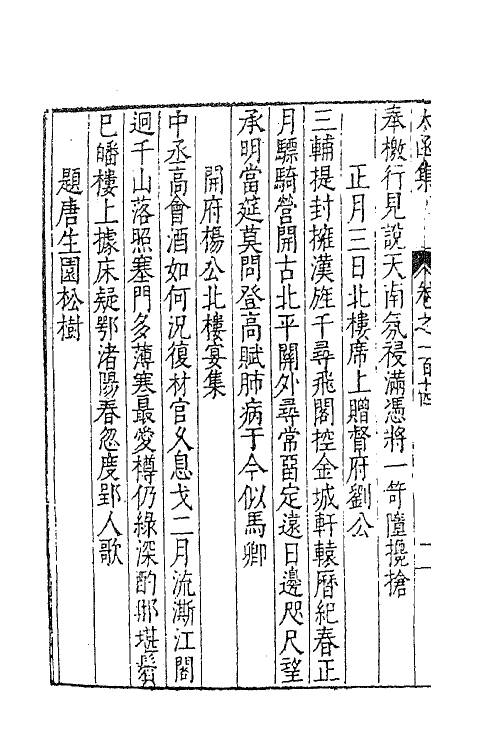 太函集 卷之一百十四 二
奉檄行見說天南氛祲滿憑將一笴墮攙搶
正月三日北樓席上贈督府劉公
三輔提封擁漢旌千尋飛閣控金城軒轅曆紀春正
月驃騎營開古北平關外尋常留定遠日邊咫尺望
承明當筵莫問登高賦肺病于今似馬卿
開府楊公北樓宴集
中丞高會酒如何況復材官久息戈二月流澌江閣
迥千山落照塞門多薄寒最愛樽仍綠深酌那堪鬢
已皤樓上據床疑鄂渚陽春忽度郢人歌
題唐生園松樹